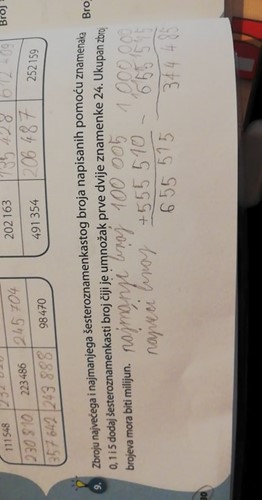 Broj
Broj
111548
202163
223486
245 704
491354
206 487
252159
243 888
98470
9.
Zbroju najvećega i najmanjega šesteroznamenkastog broja napisanih pomoću znamenaka
0, 1 i 5 dodaj šesteroznamenkasti broj čiji je umnožak prve dvije znamenke 24. Ukupan zbroj
brojeva mora biti milijun.
najmanje broj 100 005 1 000 000
najveći broj +555 510 - 655 515
655 515 344 485